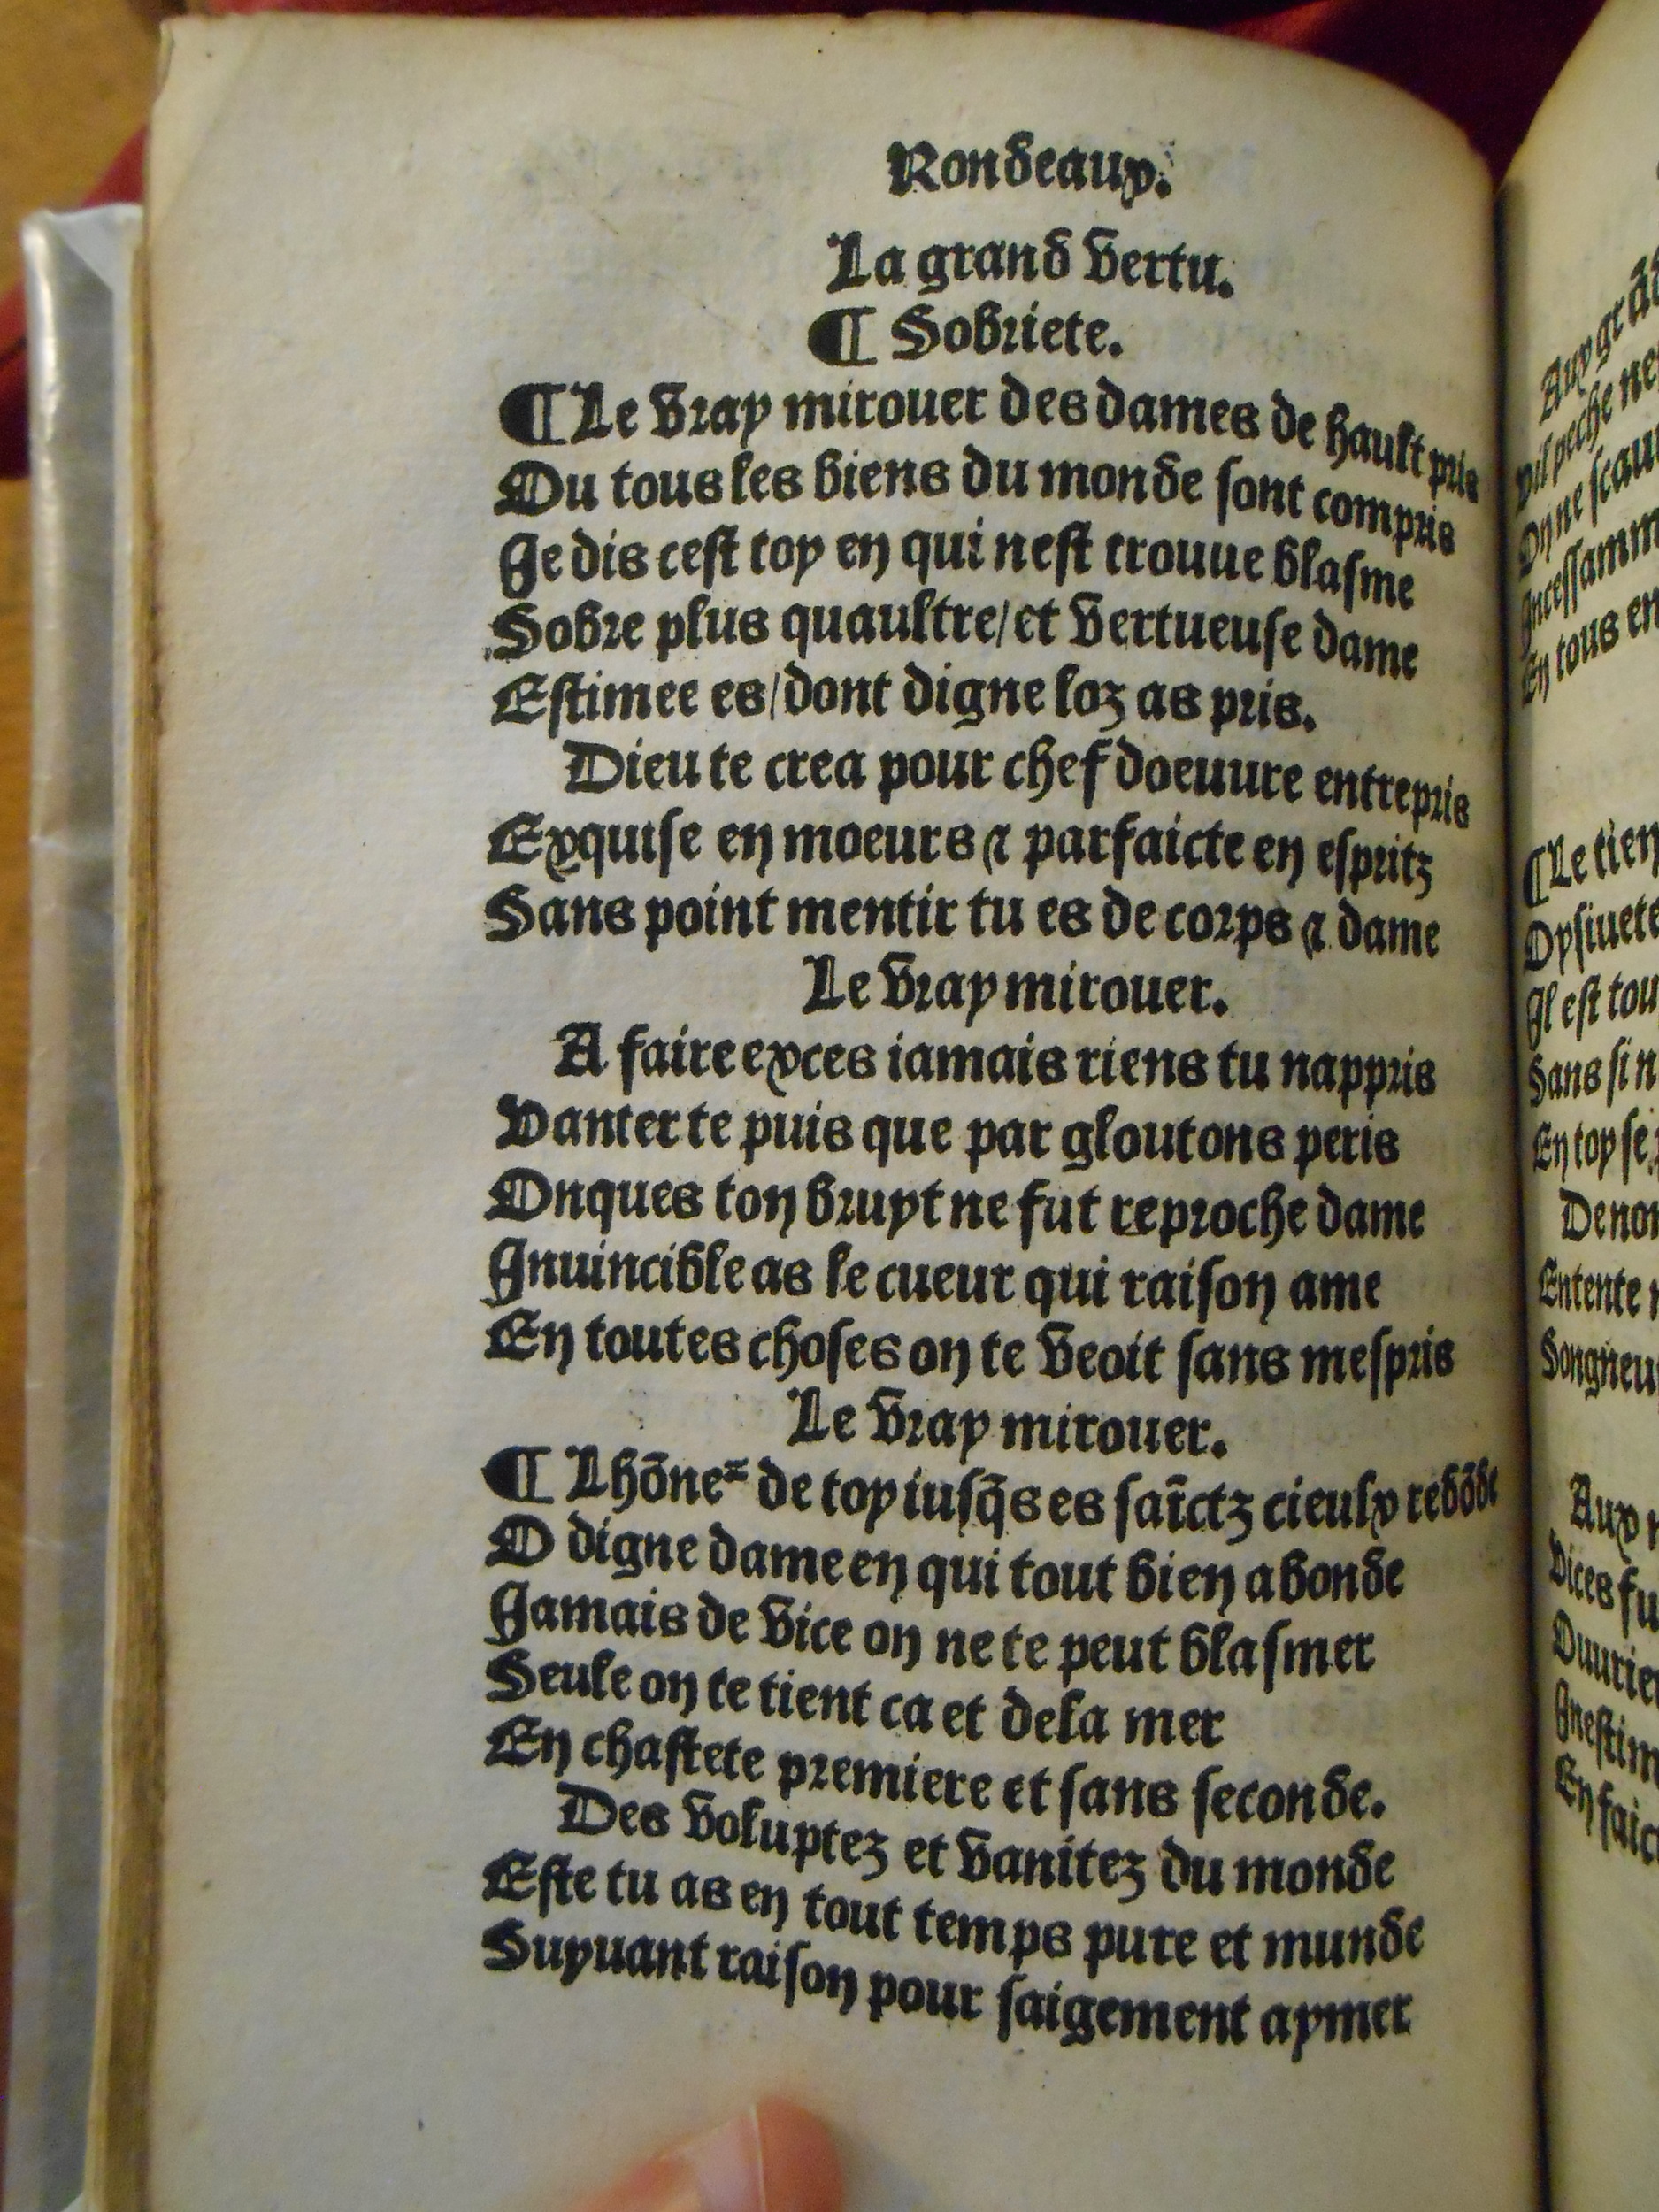 Rondeaux.
La grand vertu.
¶ Sobriete.
¶ Le vray mirouer des dames de hault pris
Ou tous les biens du monde sont compris
Je dis cest toy en qui nest trouue blasme
Sobre plus quaultre/et vertueuse dame
Estimee es/dont digne loz as pris.
Dieu te crea pour chef doeuure entrepris
Exquise en moeurs ⁊ parfaicte en espritz
Sans point mentir tu es de corps ⁊ dame
Le vray mirouer.
A faire exces iamais riens tu nappris
Vanter te puis que par gloutons peris
Onques ton bruyt ne fut reproche dame
Inuincible as le cueur qui raison ame
En toutes choses on te veoit sans mespris
Le vray mirouer.
¶ Lhõneᷣ de toy iusq̃s es saĩctz cieulx redõde
O digne dame en qui tout bien abonde
Jamais de vice on ne te peut blasmer
Seule on te tient ca et dela mer
En chastete premiere et sans seconde.
Des voluptez et vanitez du monde
Este tu as en tout temps pure et munde
Suyuant raison pour saigement aymer
vil peche
On ne
En tous en
¶ Le tien
Il est tou
Sans si n
En toy se
Entente
Vices fu